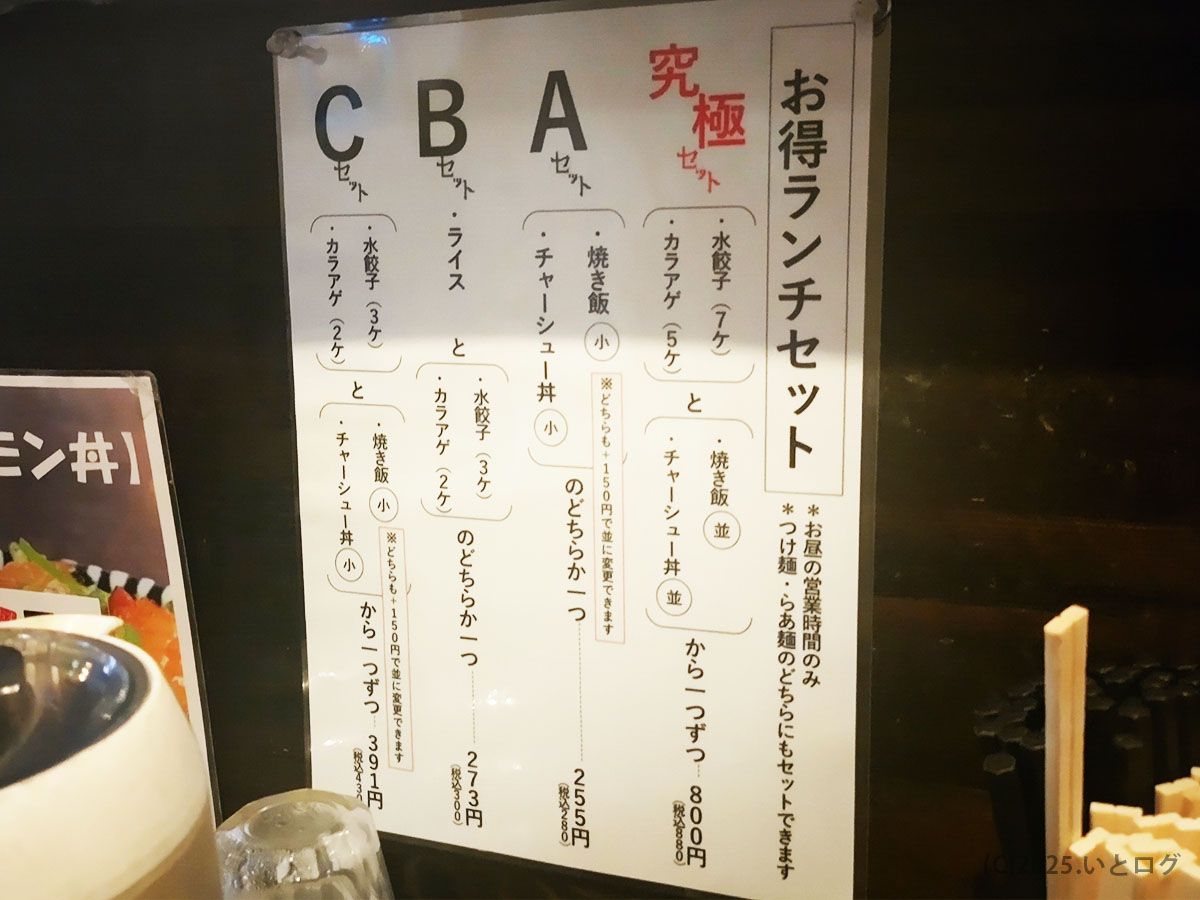 お得ランチセット
＊お昼の営業時間のみ
＊つけ麺・らあ麺のどちらにもセットできます
究極セット
・水餃子（7ケ）
・カラアゲ（5ケ）
と
・焼き飯 並
・チャーシュー丼 並
から一つずつ
800円
(税込880)
Aセット
・焼き飯 小
・チャーシュー丼 小
※どちらも+150円で並に変更できます
のどちらか一つ
255円
(税込280)
Bセット
・ライス
と
・水餃子（3ケ）
・カラアゲ（2ケ）
のどちらか一つ
273円
(税込300)
Cセット
・水餃子（3ケ）
・カラアゲ（2ケ）
と
・焼き飯 小
・チャーシュー丼 小
※どちらも+150円で並に変更できます
から一つずつ
391円
(税込430
モン丼】
(C)2025.いとログ